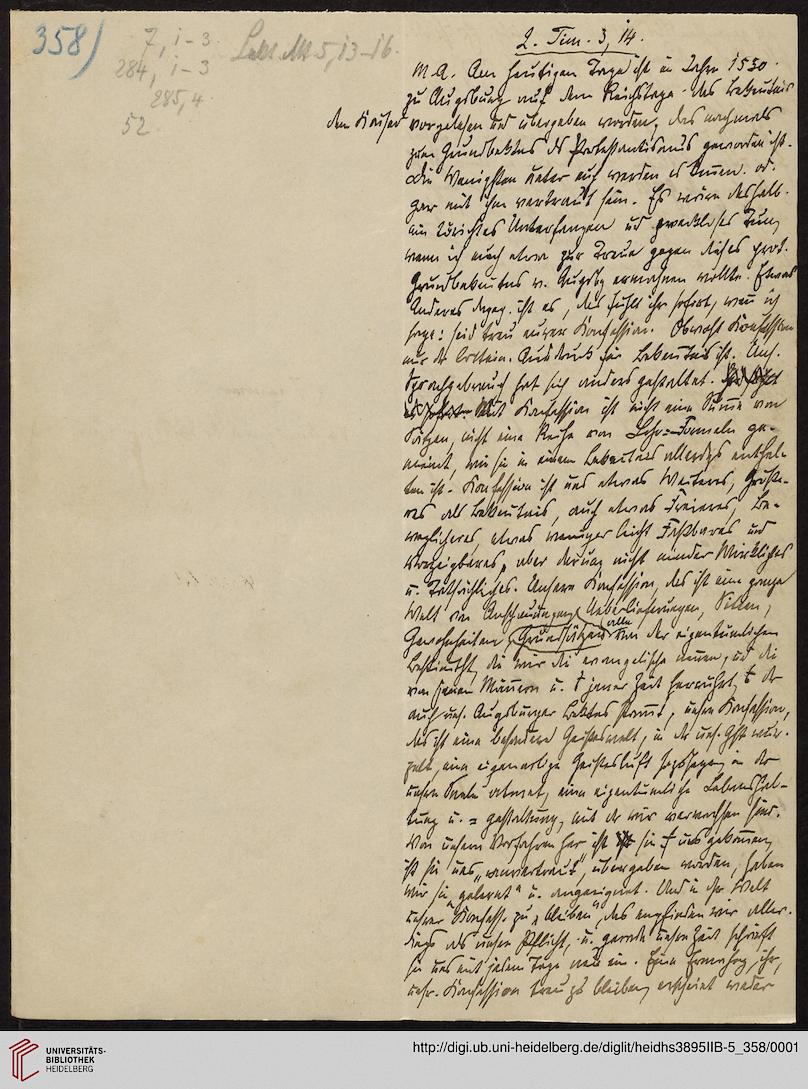 358)
7, 1-3.
284, 1-3
285, 4
52
Lekt. Mt 5, 13-16.
2. Tim. 3, 14.
M. A. Am heutigen Tage ist im Jahre 1530
zu Augsburg auf dem Reichstage das Bekenntnis
dem Kaiser vorgelesen und übergeben worden, das nachmals
zum Grundbektns ds Protestantismus geworden ist.
Die Wenigsten unter euch werden es kennen od.
gar mit ihm vertraut sein. Es wäre deshalb
ein törichtes Unterfangen und zweckloses Tun,
wenn ich euch etwa zur Treue gegen dieses prot.
Grundbekentns v. Augsbg ermahnen wollte. Etwas
Anderes dageg. ist es, das fühlt ihr sofort, wenn ich
sage: seid treu eurer Konfession. Obwohl Konfession
nur der latein. Ausdruck für Bekenntnis ist. Uns.
Sprachgebrauch hat sich anders gestaltet.
Mit Konfession ist nicht eine Summe von
Sätzen, nicht eine Reihe von Lehr-Formeln ge-
meint, wie sie in einem Bekentnis allerdgs enthal-
ten ist. Konfession ist uns etwas Weiteres, Größe-
res als Bekentnis, auch etwas Freieres, Be-
weglicheres, etwas weniger leicht Faßbares und
Vorzeigbares, aber darum nicht minder Wirkliches
u. Tatsächliches. Unsere Konfession, das ist eine ganze
Welt von Anschauungen, Ueberlieferungen, Sitten,
Gewohnheiten, Grundsätzen, alle von der eigentümlichen
die wir die evangelische nennen, und die
von jenen Männern u. jener Zeit herrührt, der
auch uns. Augsburger Bektns stammt, unsre Konfession,
das ist eine besondere Geisteswelt, in der uns. wur-
zelt, eine eigenartige Geistesluft sozusagen, in der
unsere Seele atmet, eine eigentümliche Lebenshal-
tung u. = gestaltung, mit der wir verwachsen sind.
Von unsern Vorfahren her ist sie uns gekommen,
ist sie uns „anvertraut", übergeben worden, haben
wir sie „gelernt" u. angeeignet. Und in der Welt
unserer Konfess. zu „bleiben", das empfinden wir aller-
dings als unsere Pflicht, u. gerade unsere Zeit schärft
sie uns mit jedem Tage neu ein.
unsr. Konfession treu zu bleiben, erscheint weder
UNIVERSITÄTS-
BIBLIOTHEK
HEIDELBERG
http://digi.ub.uni-heidelberg.de/diglit/heidhs3895IIB-5_358/0001